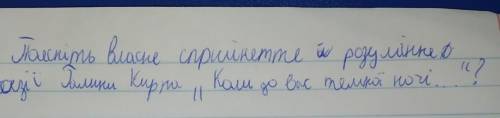 Поясніть власне сприйнетте й розумінне
оезії Галини Кирпа „Коли до вас темної ночі....."?